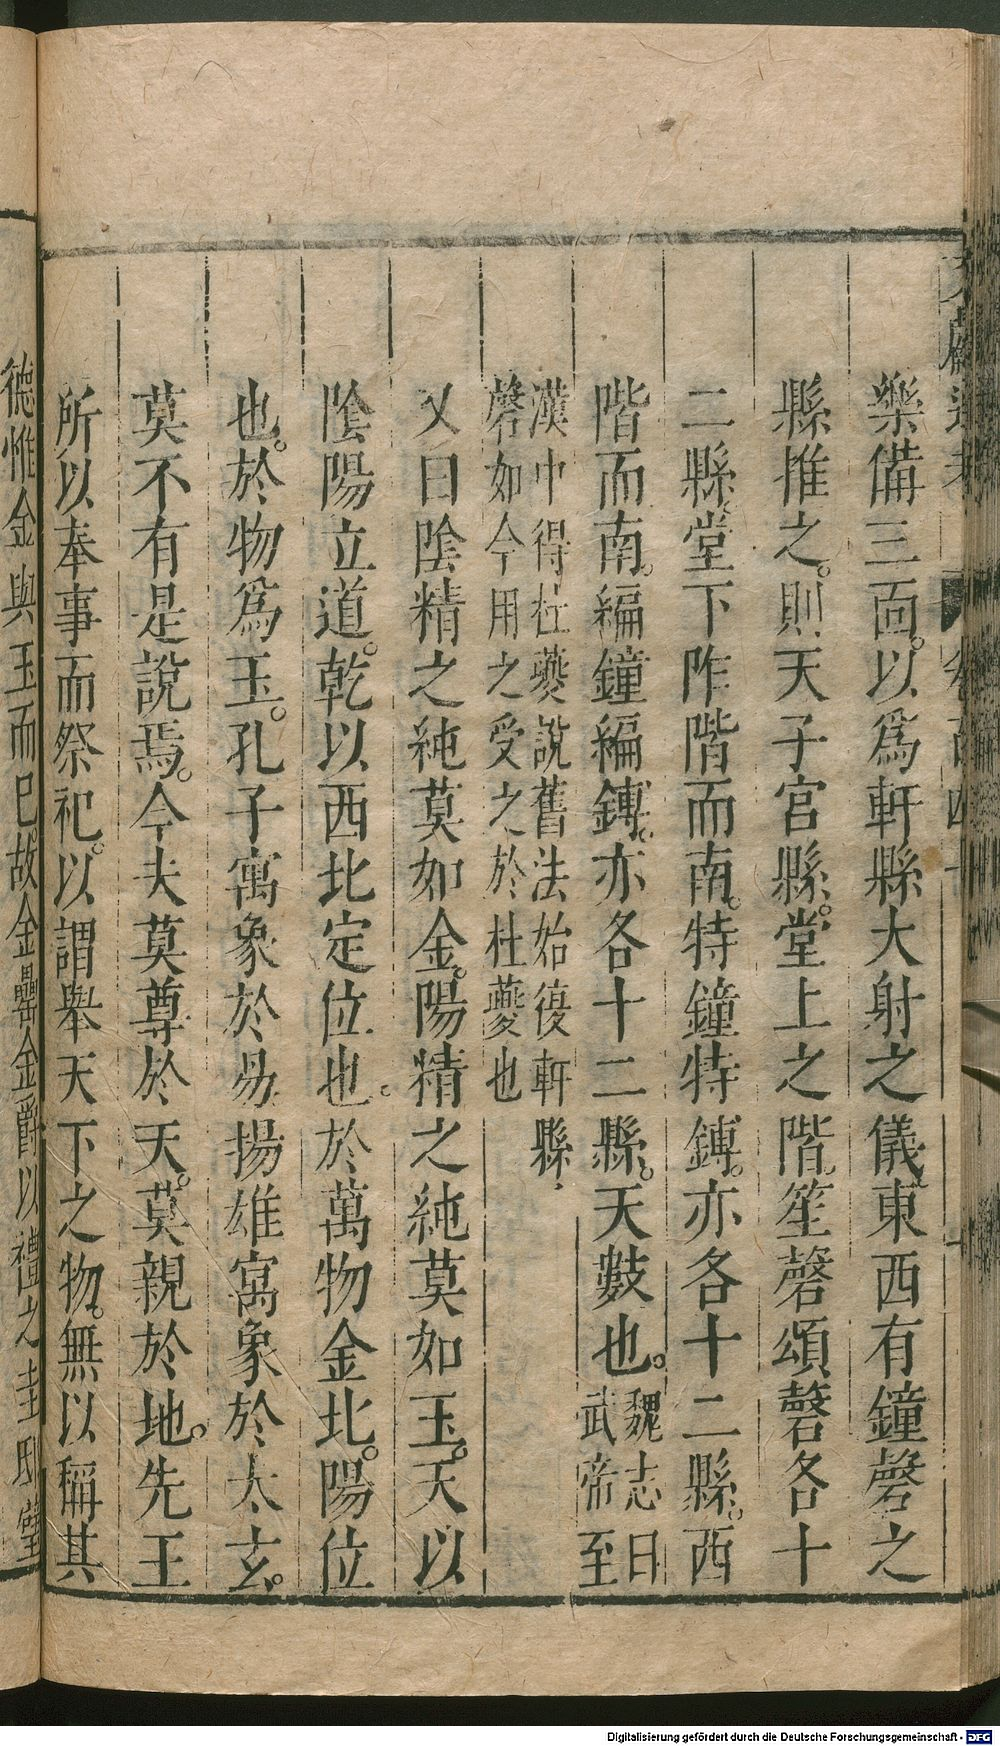 樂備三面。以為軒縣大射之儀東西有鐘磬之
縣推之。則天子宮縣。堂上之階。笙磬頌磬各十
二縣。堂下阼階而南。特鐘特鎛。亦各十二縣。西
階而南。編鐘編鎛。亦各十二縣。天數也。魏志曰武帝至
漢中得杜夔說舊法始復軒縣
磬如今用之受之於杜夔也
又曰陰精之純莫如金。陽精之純莫如玉。天以
陰陽立道。乾以西北定位也。於萬物金北。陽位
也。於物爲玉。孔子寓象於易揚雄寓象於太玄。
莫不有是說焉。今夫莫尊於天。莫親於地。先王
所以奉事而祭祀。以謂舉天下之物。無以稱其
德惟金與玉而已。故金罍金爵以禮之圭璧
Digitalisierung gefördert durch die Deutsche Forschungsgemeinschaft - DFG